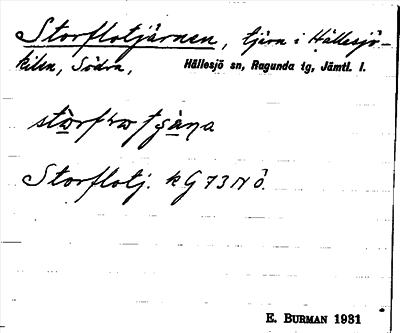 Storflotjärnen, tjärn i Hällesjö-
kilen, Södra, Hällesjö sn, Ragunda tg, Jämtl. l.
Storflotj. k G 73 N Ö.
E. BURMAN 1931